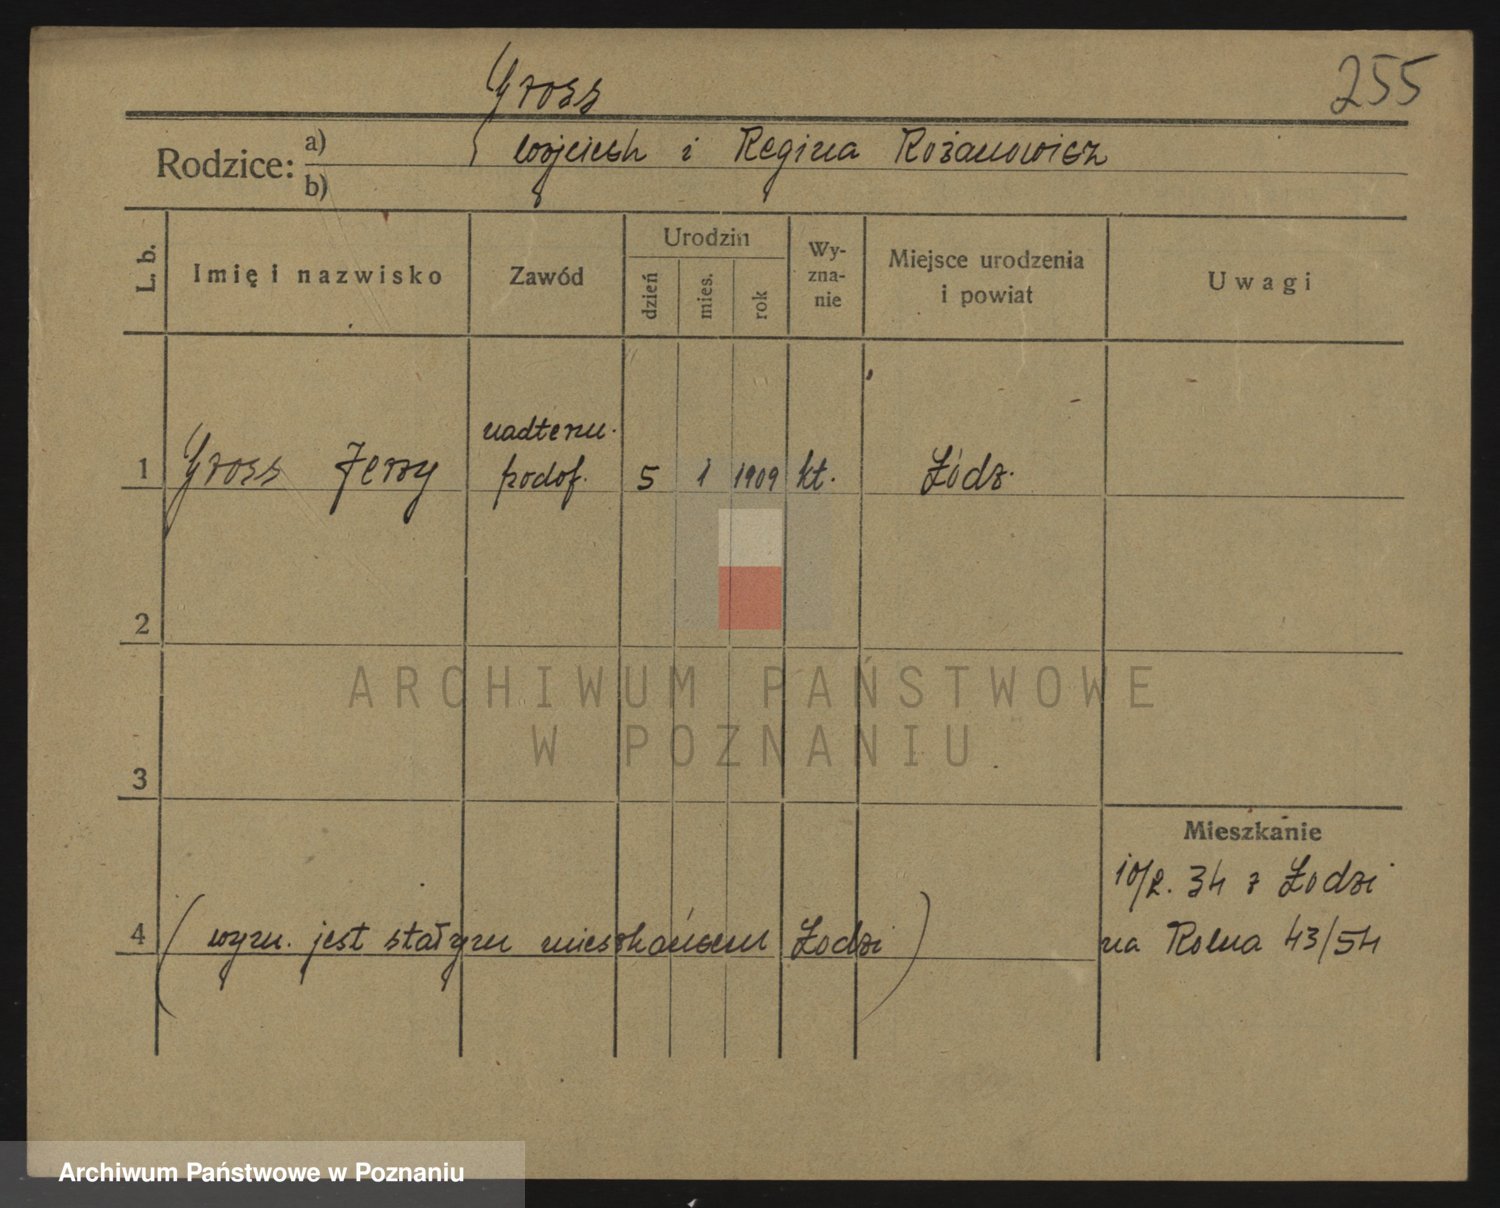 Gross
255
Rodzice: a) Wojciech i Regina Rożanowicz
b)
L. b.
Imię i nazwisko
Zawód
Urodzin
dzień
mies.
rok
Wy-
zna-
nie
Miejsce urodzenia
i powiat
Uwagi
nadterm.
1 Gross Jerzy podof. 5 1 1909 kt. Łódz.
2
ARCHIWUM PAŃSTWOWE
W POZNANIU
3
Mieszkanie
10/2. 34 z Łodzi
4 ( wym. jest stałym mieszkańcem Łodzi ) na Rolna 43/54
Archiwum Państwowe w Poznaniu